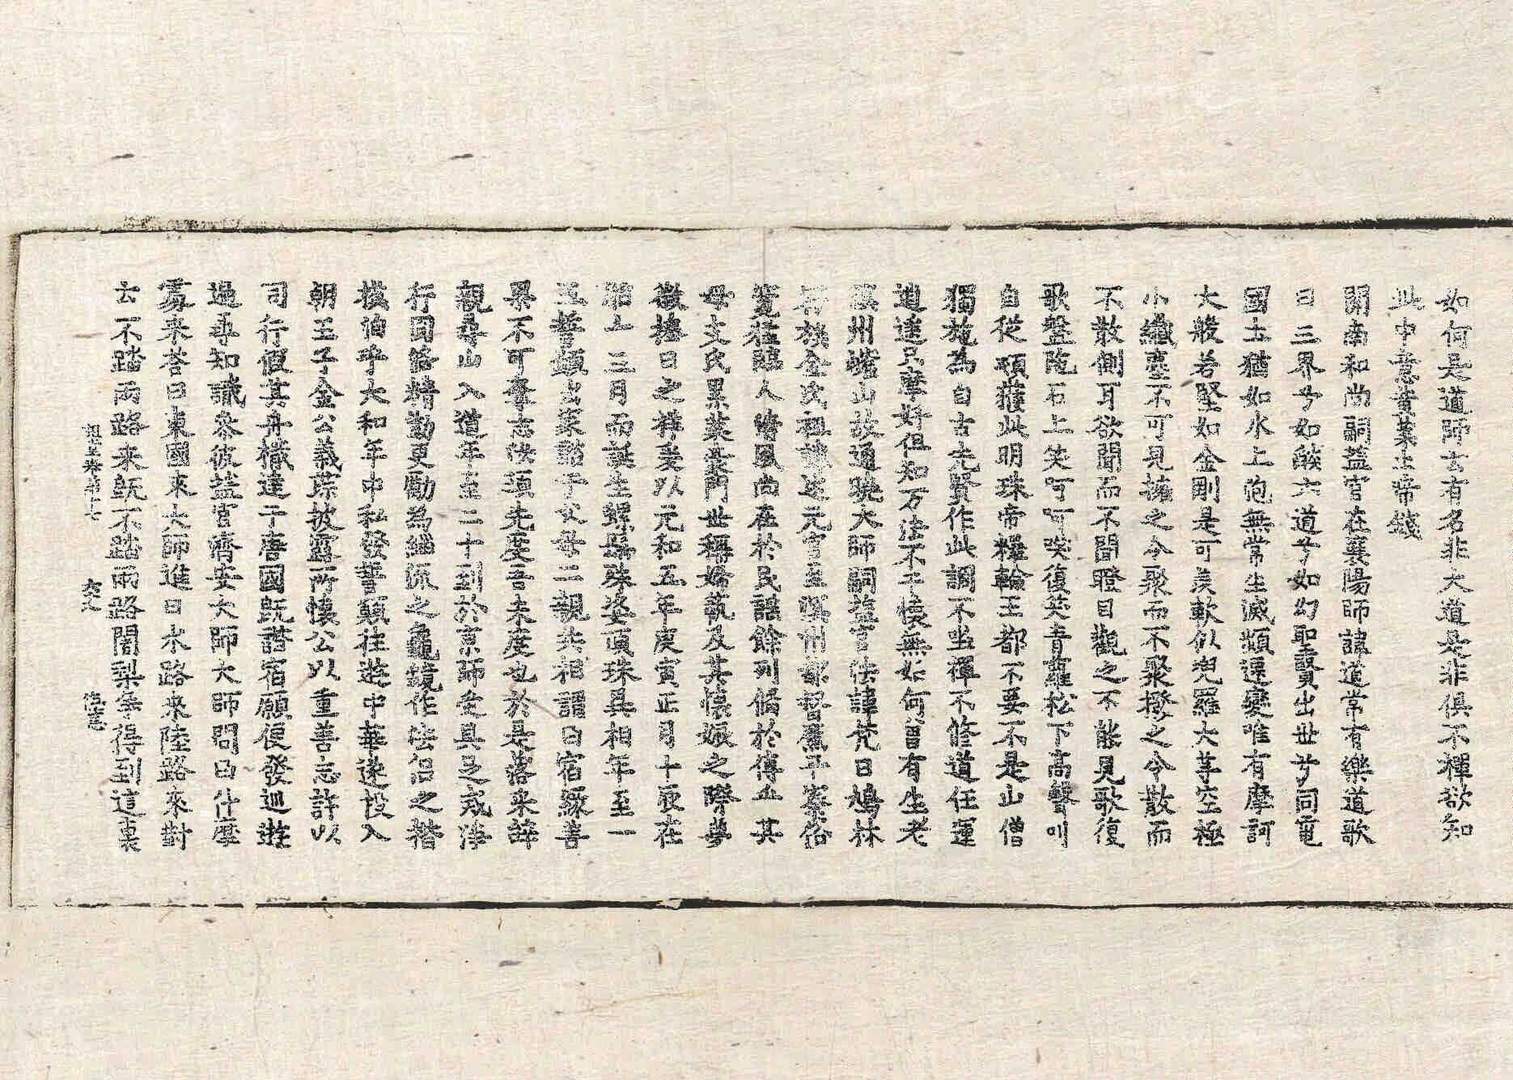 如何是道師云有名非大道是非俱不禪欲知
此中意黃葉止帝錢
關南和尚嗣盐官在襄陽師諱道常有樂道歌
曰三界兮如㷔六道兮如幻聖賢出世兮同電
國土猶如水上泡無常生滅頻遷變唯有摩訶
大般若堅如金剛是可羨軟似兜羅大等空極
小纖塵不可見擁之令聚而不聚撥之令散而
不散側耳欲聞而不聞瞪目觀之不能見歌復
歌盤陁石上笑呵呵笑復笑青蘿松下高聲叫
自從頓獲此明珠帝釋輪王都不要不是山僧
獨施為自古先賢作此調不坐禪不修道任運
逍遙只摩好但知万法不干懷無始何曾有生老
溟州𡺸山故通曉大師嗣盐官法諱梵日鳩林
冠族金氏祖諱述元官至溟州都督廉平察俗
寬猛臨人清風尚在於民謠餘列備於傳止其
母支氏累葉豪門世稱婦範及其懷娠之際夢
徵捧日之祥爰以元和五年庚寅正月十辰在
胎上三月而誕生螺髻殊姿頂珠異相年至一
五誓願出家諮于父母二親共相謂曰宿緣善
果不可奪志汝須先度吾未度也於是落采辞
親尋山入道年至二十到於京師受具足戒淨
行圓俻精勤更勵為緇流之龜鏡作法侶之楷
模洎乎大和年中私發誓願往遊中華遂投入
朝王子金公義琮披露所懷公以重善志許以
同行假其舟檝達于唐國旣諧宿願便發巡遊
遍尋知識參彼盐官濟安大師大師問曰什摩
處來荅曰東國來大師進曰水路來陸路來對
云不踏兩路來旣不踏兩路闍梨爭得到這裏
祖堂卷第十七